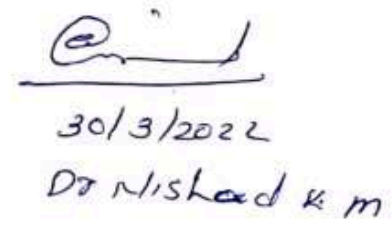 30/3/2022
Dr Nishad K. M